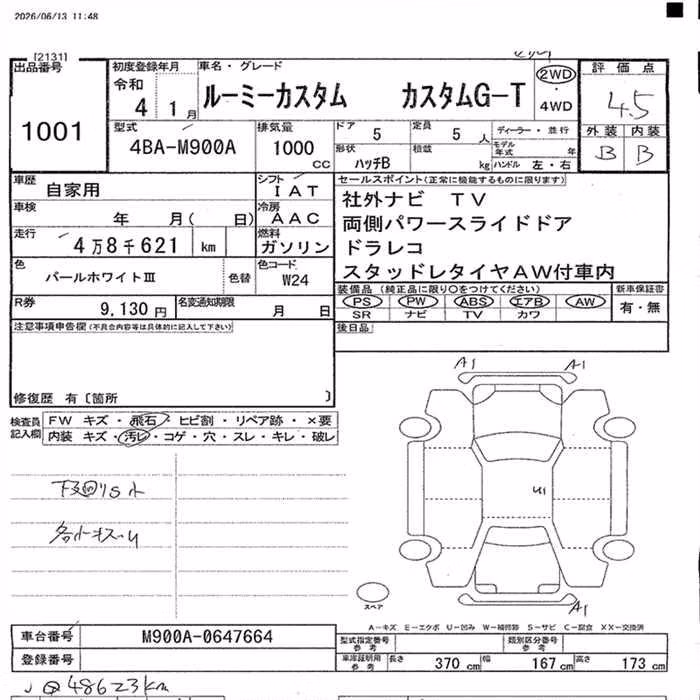 2026/06/13 11:48
[2131]
出品番号
1001
初度登録年月
令和
4 1月
車名・グレード
ルーミーカスタム カスタムG-T
2WD
・
4WD
評価点
4.5
外装 内装
B B
型式
4BA-M900A
排気量
1000 cc
ドア 5
定員 5 人
形状 ハッチB
積載 kg
ディーラー・並行
モデル年式 年
ハンドル 左・右
車歴 自家用
シフト IAT
車検 年 月( 日)
冷房 AAC
走行 4万8千621 km
燃料 ガソリン
色 パールホワイトⅢ 色替
色コード W24
R券 9,130円
名変通知期限 月 日
セールスポイント(正常に機能するものに限ります)
社外ナビ TV
両側パワースライドドア
ドラレコ
スタッドレタイヤAW付車内
装備品 (純正品に限り○をつけてください)
PS PW ABS エアB AW
SR ナビ TV カワ
新車保証書
有・無
後日品
注意事項申告欄(不具合内容等は具体的に記入して下さい)
修復歴 有〔箇所 〕
検査員記入欄
FW キズ・飛石・ヒビ割・リペア跡・×要
内装 キズ・汚レ・コゲ・穴・スレ・キレ・破レ
下回りS小
各小キズ・U
A1 A1
U1
A1
スペア
A-キズ E-エクボ U-凹み W-補修跡 S-サビ C-腐食 XX-交換済
車台番号 M900A-0647664
登録番号
型式指定番号 参考
類別区分番号 参考
車庫証明用 参考
長さ 370 cm 幅 167 cm 高さ 173 cm
48623km